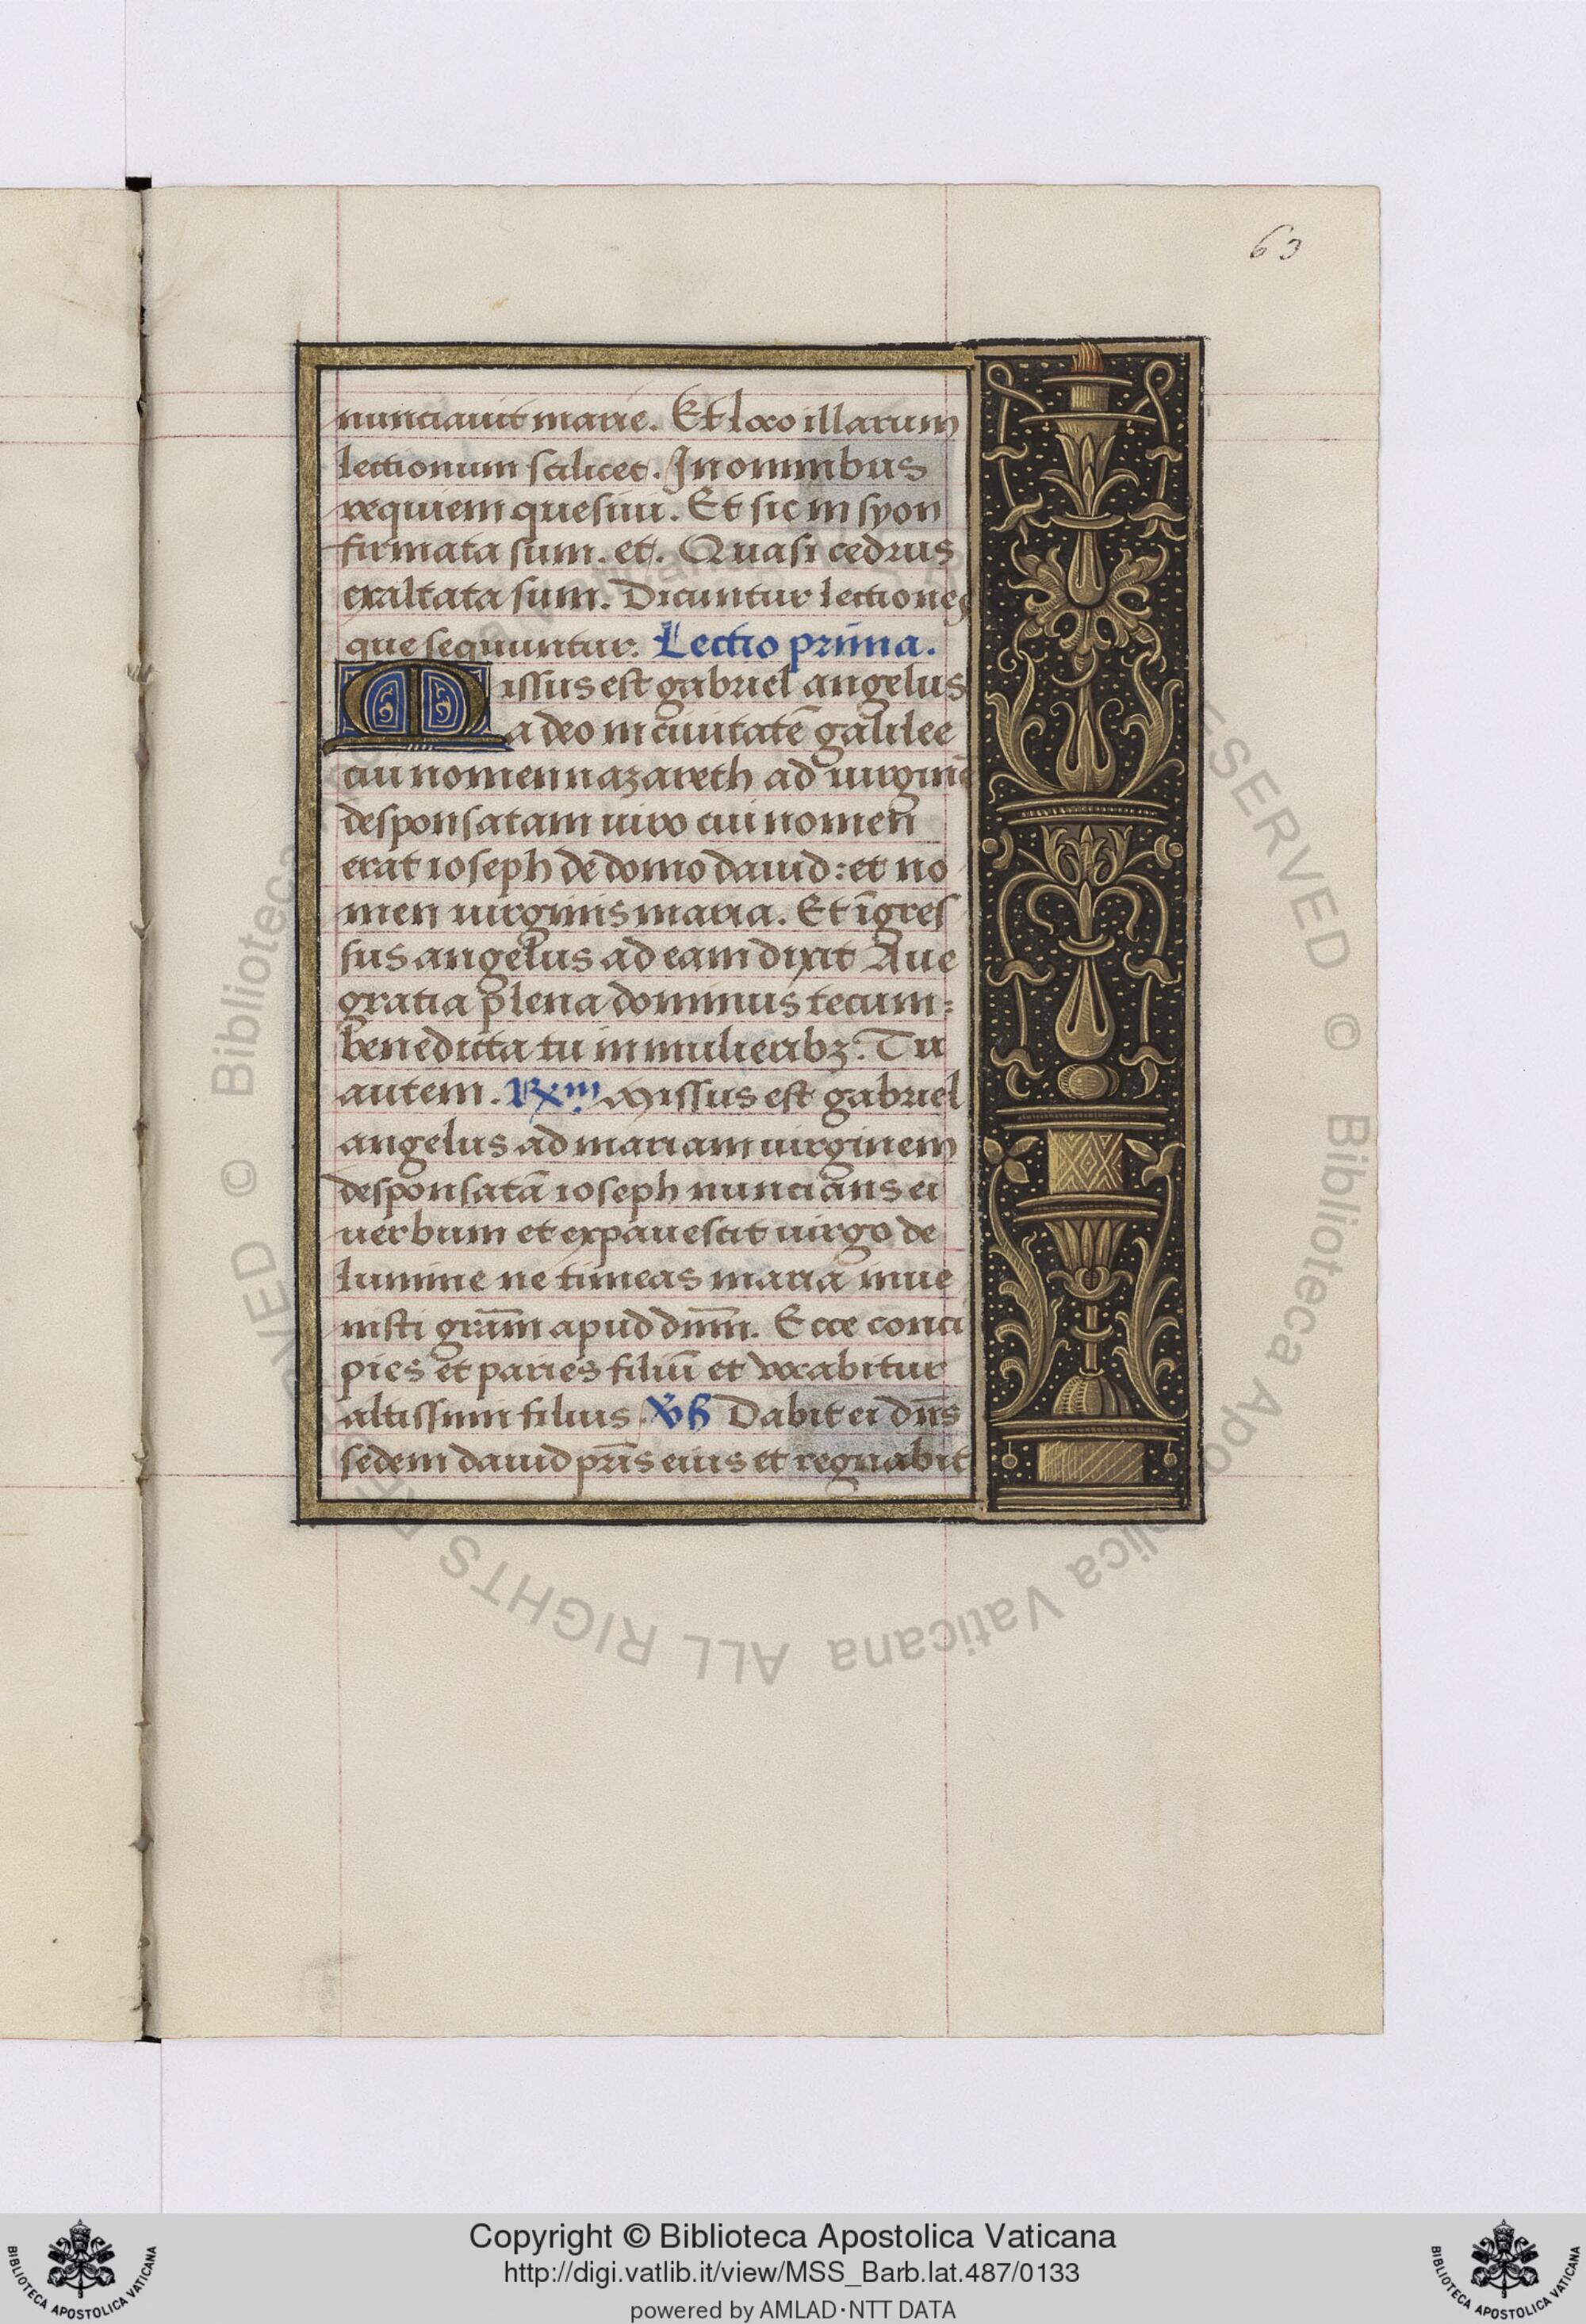 63
nunciauit marie. Et loco illarum
lectionum scilicet. In omnibus
requiem quesiui. Et sic in syon
firmata sum. et. Quasi cedrus
exaltata sum. Dicuntur lectiones
que sequuntur. Lectio prima.
Missus est gabriel angelus
a deo in ciuitatē galilee
cui nomen nazareth ad uirginē
desponsatam uiro cui nomen
erat ioseph de domo dauid: et no
men uirginis maria. Et īgres
sus angelus ad eam dixit Aue
gratia plena dominus tecum:
benedicta tu in mulieribꝫ. Tu
autem. Missus est gabriel
angelus ad mariam uirginem
desponsatā ioseph nuncians ei
uerbum et expauescit uirgo de
lumine ne timeas maria inue
nisti grām apud dnm̄. Ecce conci
pies et paries filiū et vocabitur
altissimi filius. Dabit ei dn̄s
sedem dauid pr̄is eius et regnabit
© Biblioteca Apostolica Vaticana ALL RIGHTS RESERVED
Copyright © Biblioteca Apostolica Vaticana
http://digi.vatlib.it/view/MSS_Barb.lat.487/0133
powered by AMLAD·NTT DATA
BIBLIOTECA APOSTOLICA VATICANA
BIBLIOTECA APOSTOLICA VATICANA